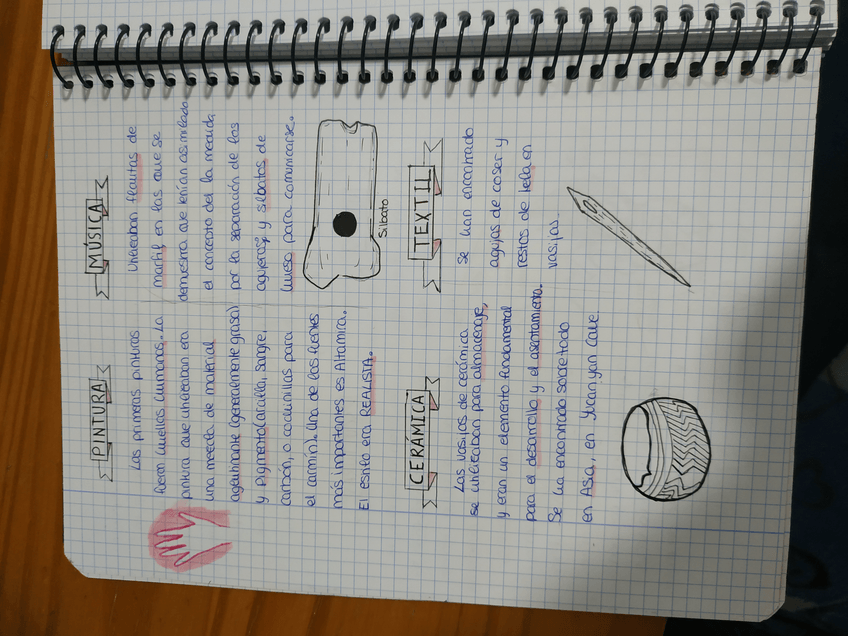 PINTURA
Las primeras pinturas
fueron huellas humanas. La
pintura que utilizaban era
una mezcla de material
aglutinante (generalmente grasa)
y pigmento (arcilla, sangre,
carbón, o cochinillas para
el carmín). Una de las fuentes
más importantes es Altamira.
El estilo era REALISTA.
MÚSICA
Utilizaban flautas de
marfil en las que se
demuestra que tenían asimilado
el concepto del la medida
por la separación de los
agujeros, y silbatos de
hueso para comunicarse.
Silbato
CERÁMICA
Las vasijas de cerámica
se utilizaban para almacenaje,
y eran un elemento fundamental
para el desarrollo y el asentamiento.
Se ha encontrado sobretodo
en Asia, en Yucanyan Cave.
TEXTIL
Se han encontrado
agujas de coser y
restos de tela en
vasijas.